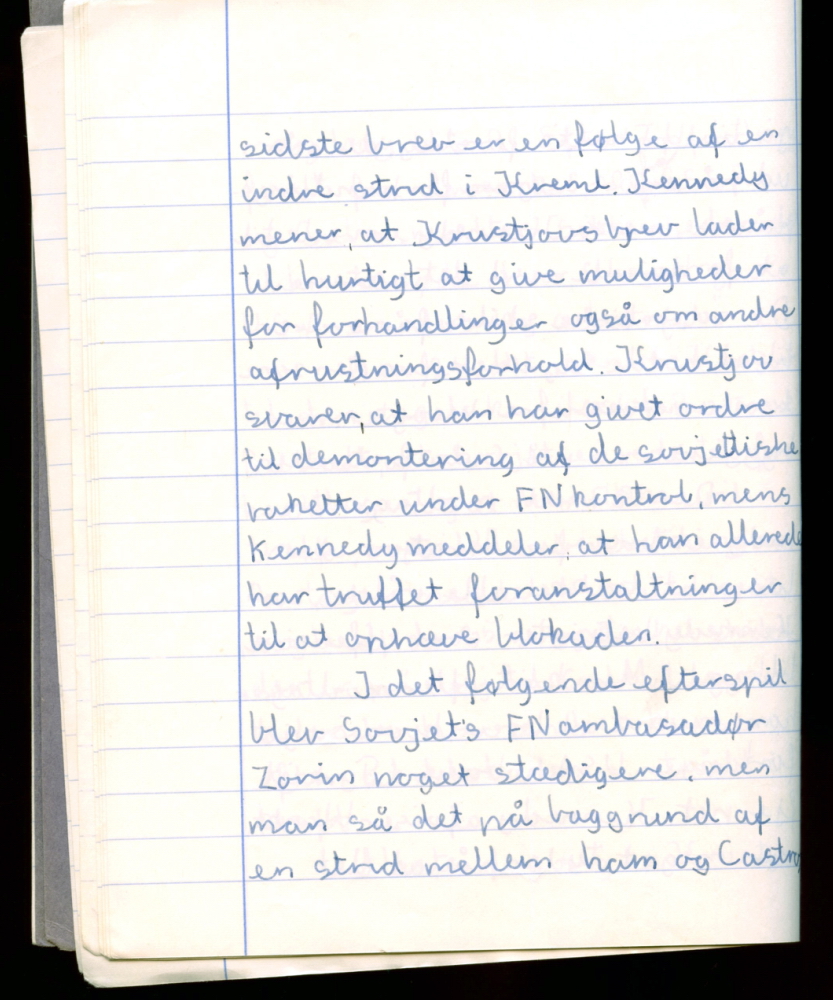 sidste brev er en følge af en
indre strid i Kreml. Kennedy
mener, at Krustjovs brev lader
til hurtigt at give muligheder
for forhandlinger også om andre
afrustningsforhold. Krustjov
svarer, at han har givet ordre
til demontering af de sovjettiske
raketter under FN kontrol, mens
Kennedy meddeler, at han allerede
har truffet foranstaltninger
til at ophæve blokaden.
I det følgende efterspil
blev Sovjet's FN ambasadør
Zorin noget stædigere, men
man så det på baggrund af
en strid mellem ham og Castro